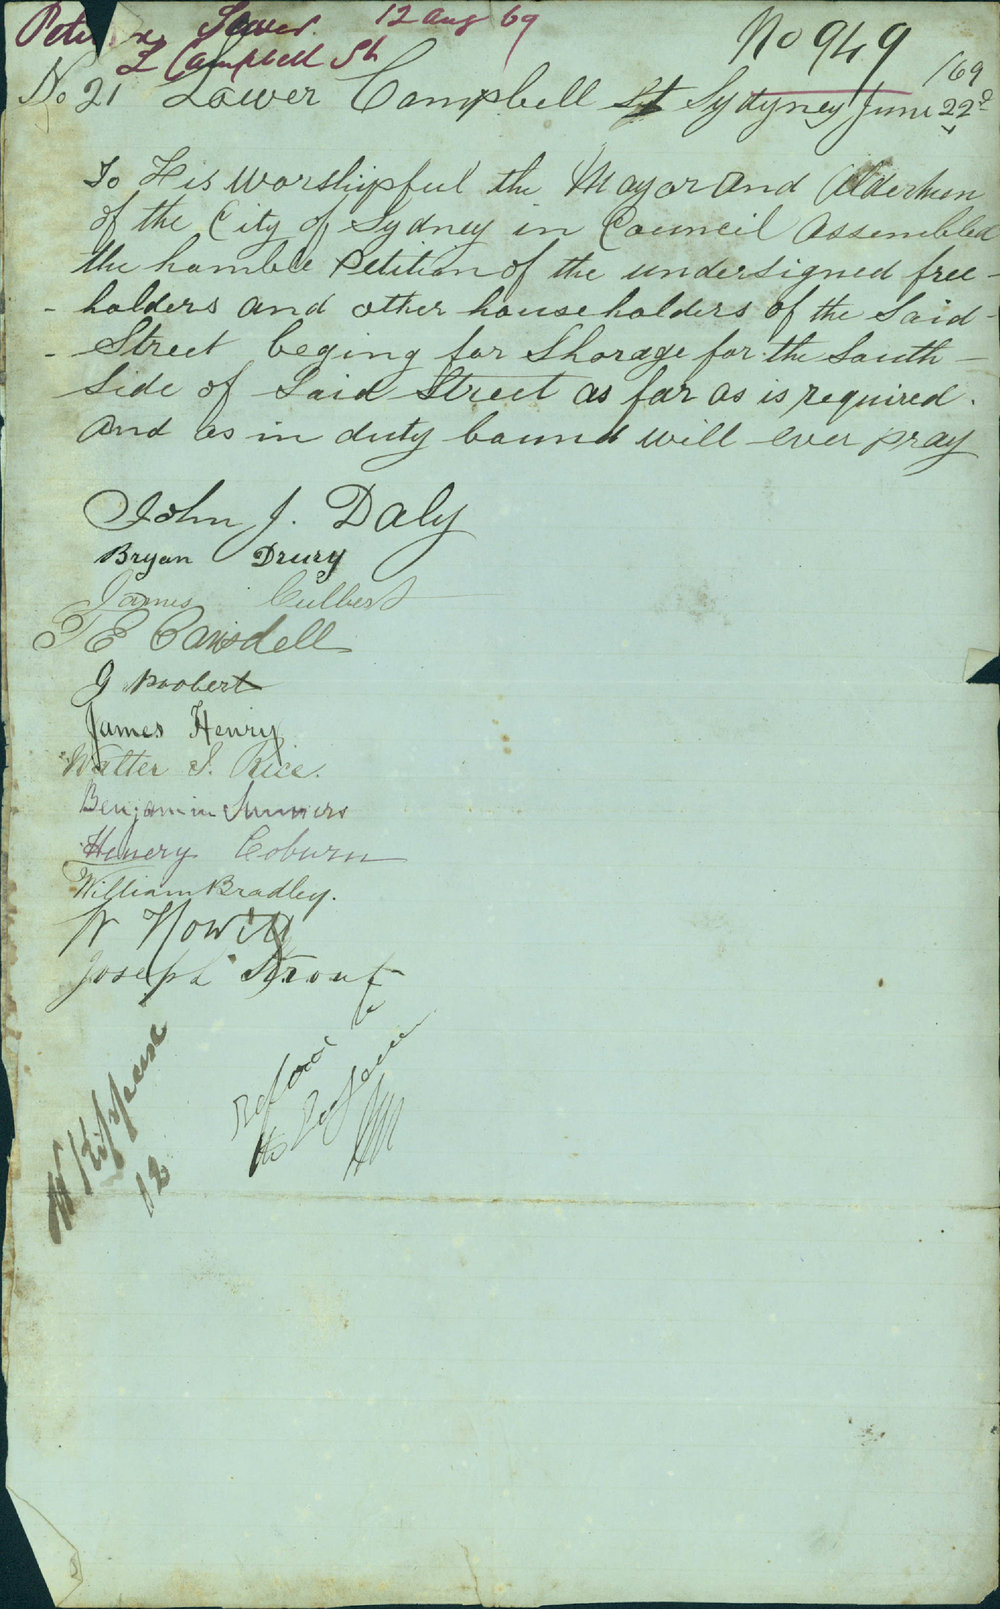 Petn re Sewer. 12 Aug 69
L Campbell St
No 949
/69
No 21 Lower Campbell St Sydyney June 22d
To His worshipful the Mayor and Alderhmen
of the City of Sydney in Council assembled
the humble Petition of the undersigned free-
- holders and other householders of the Said-
- Street beging for Shorage for the South -
Side of Said Street as far as is required.
And as in duty bound will ever pray
John J. Daly
Bryan Drury
James Culbert
T E Cansdell
J Proobert
James Henry
Walter S. Rice.
Benjamin Summers
Henery Coburn
William Bradley.
W Howill
Joseph Strout
W Kippax
12